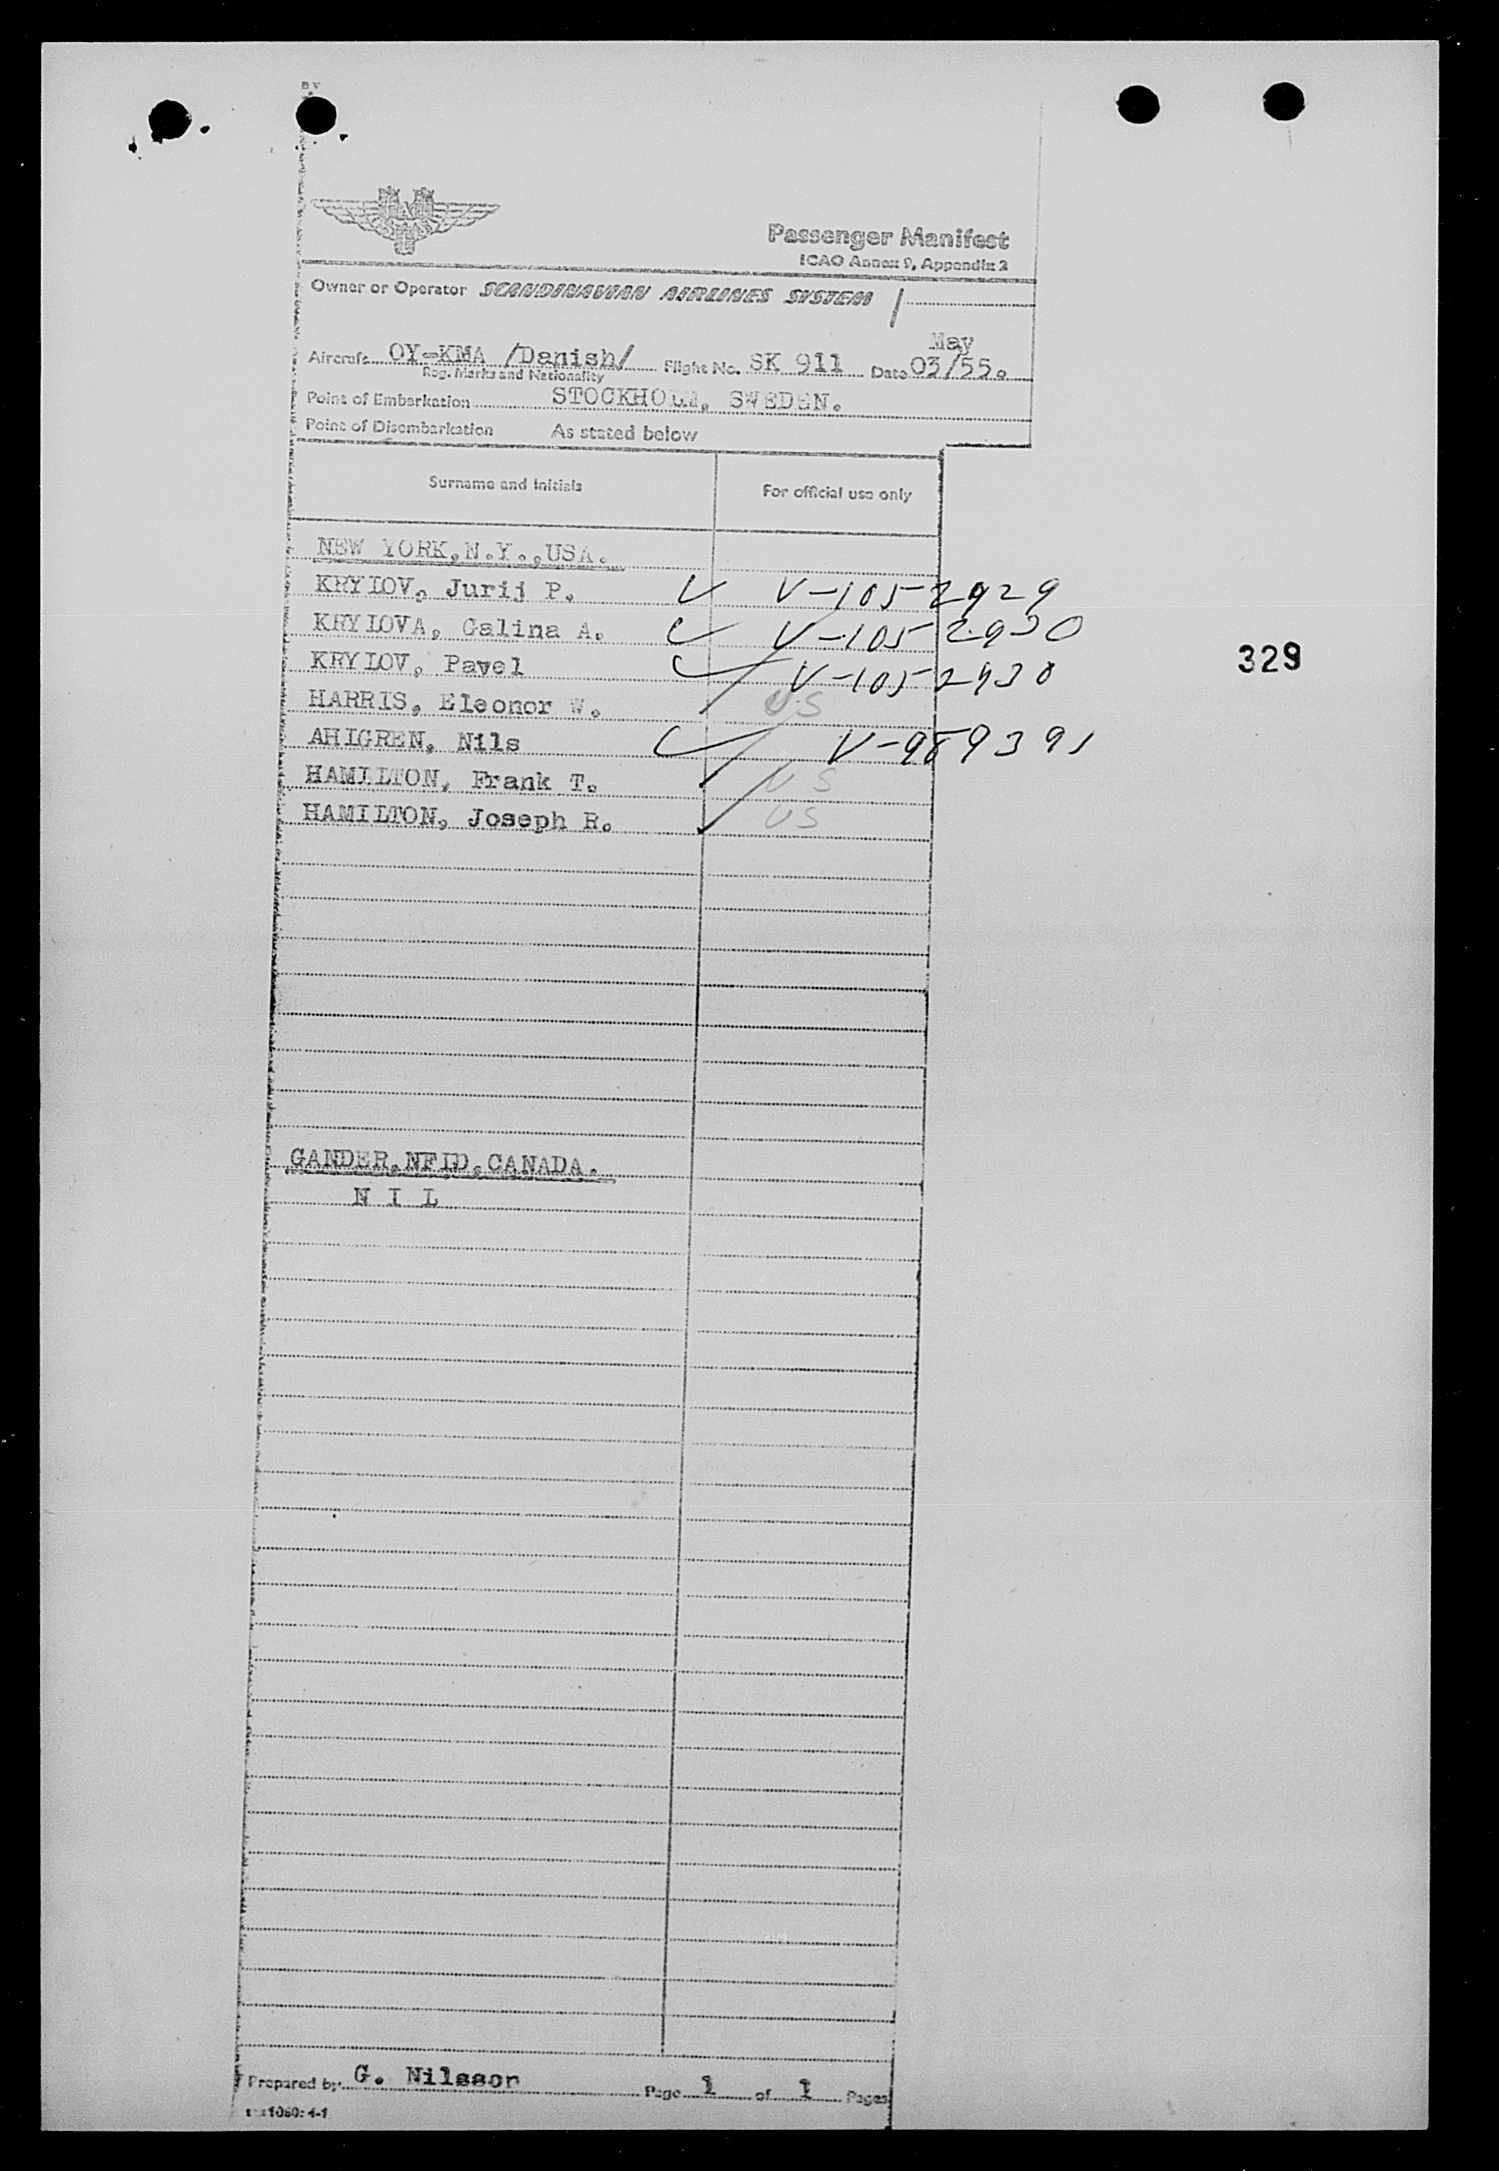 Passenger Manifest
ICAO Annex 9, Appendix 2
Owner or Operator SCANDINAVIAN AIRLINES SYSTEM
May
Aircraft OY-KMA /Danish/ Flight No. SK 911 Date 03/55.
Reg. Marks and Nationality
Point of Embarkation STOCKHOLM, SWEDEN.
Point of Disembarkation As stated below
Surname and Initials For official use only
NEW YORK,N.Y.,USA.
KRYLOV, Jurij P. V-1052929
KRYLOVA, Galina A. V-1052930
KRYLOV, Pavel V-1052930
329
HARRIS, Eleonor W. US
AHLGREN, Nils V-989391
HAMILTON, Frank T. US
HAMILTON, Joseph R. US
GANDER,NFLD,CANADA.
N I L
Prepared by G. Nilsson Page 1 of 1 Pages
1060: 4-1